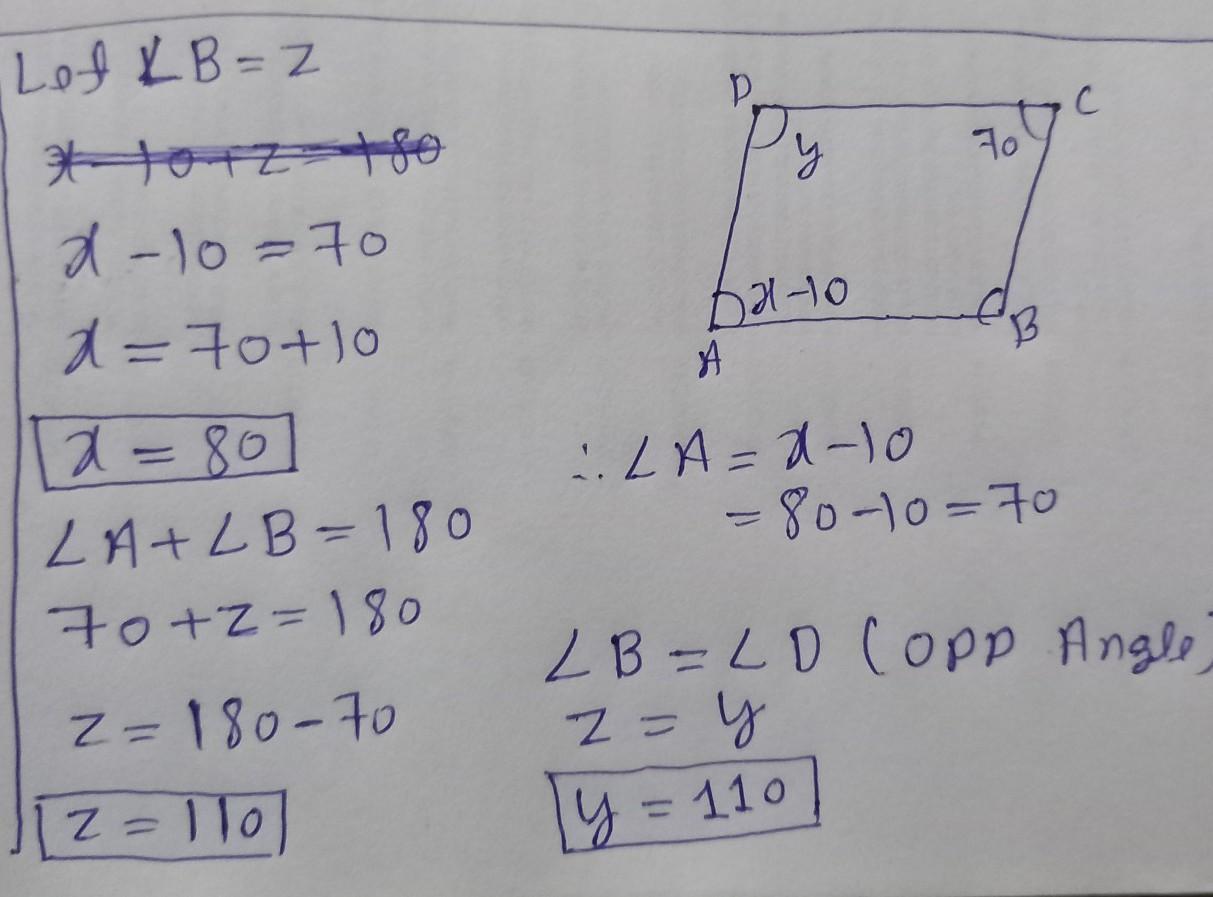 Let ∠B = z
x - 10 + z = 180
x - 10 = 70
x = 70 + 10
x = 80
∠A + ∠B = 180
70 + z = 180
z = 180 - 70
z = 110
D
C
y
70
x-10
A
B
∴ ∠A = x - 10
= 80 - 10 = 70
∠B = ∠D (opp Angle)
z = y
y = 110